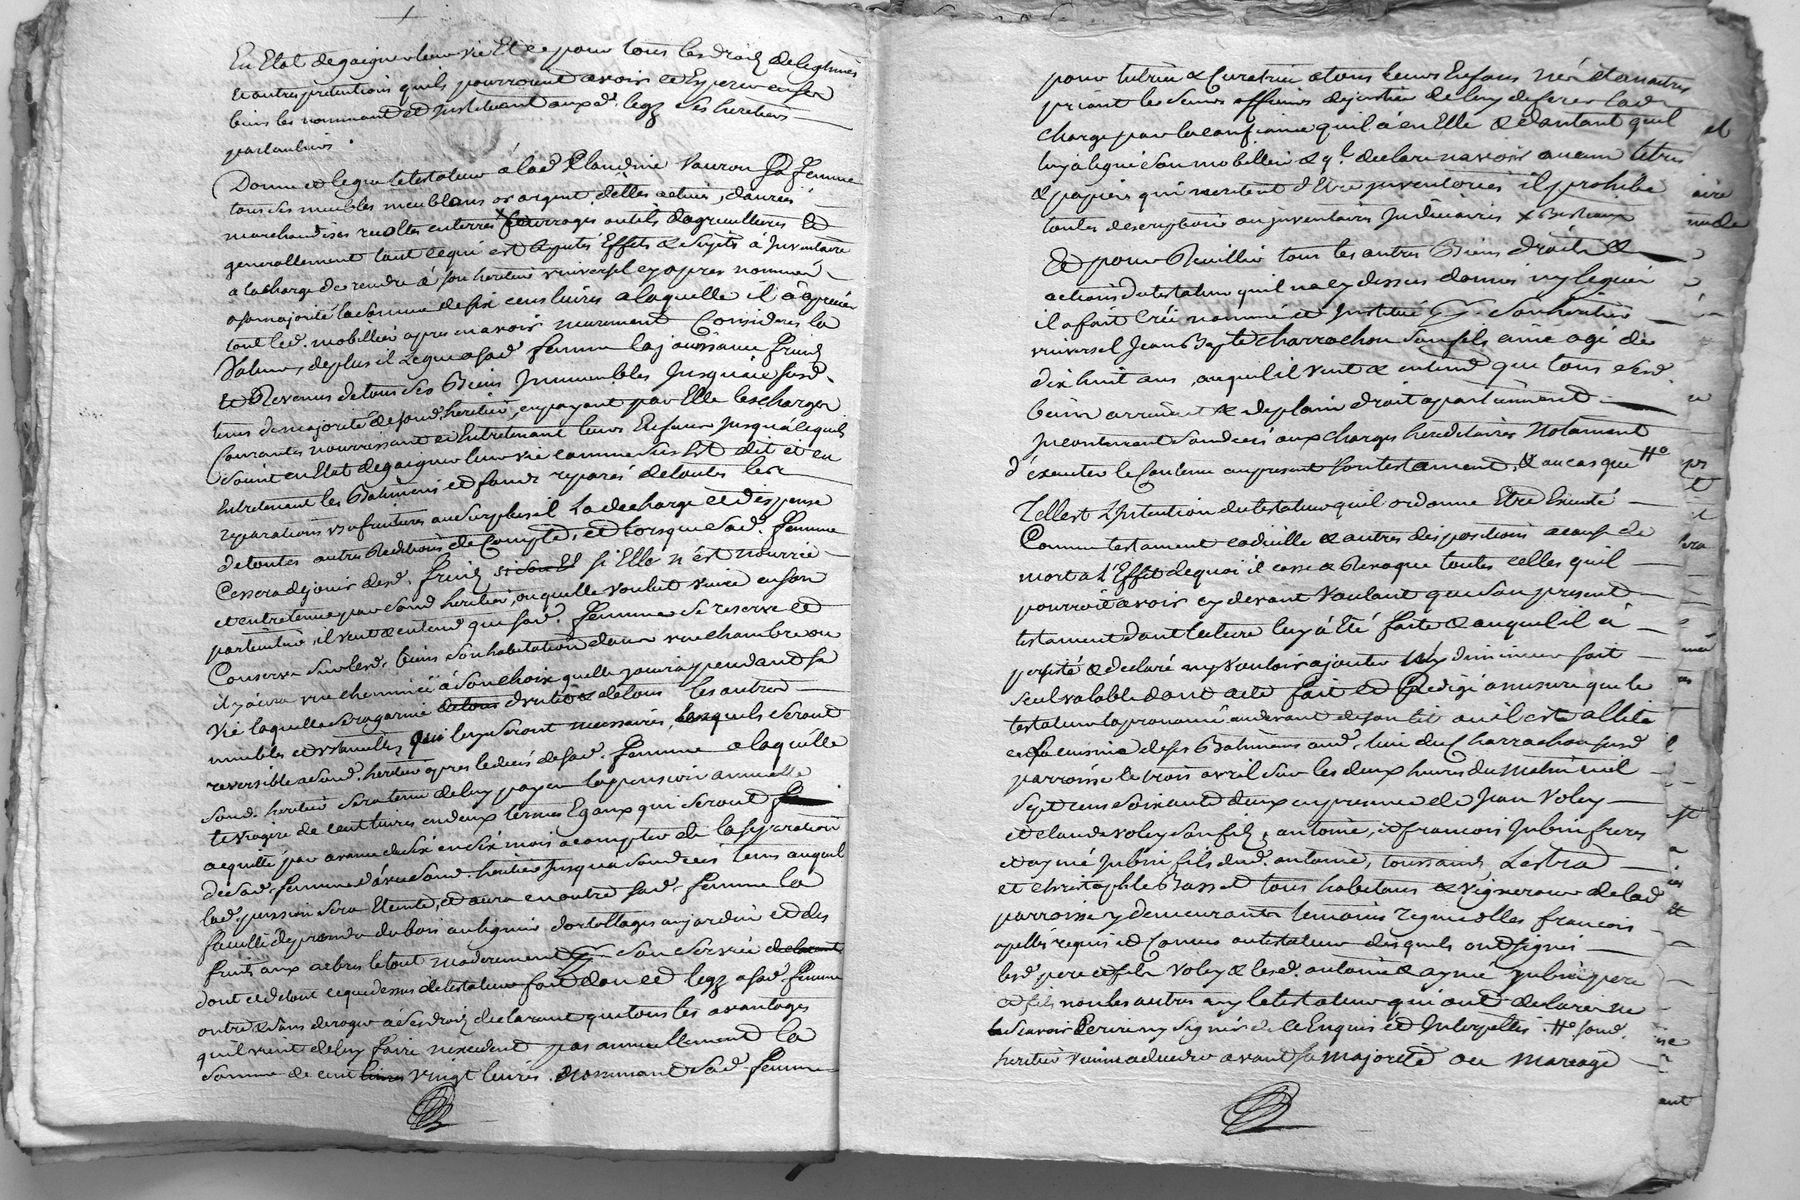 En Etat de gaigner leur vie Et ce pour tous les droits de legitimes
Et autres pretentions quils pourroient avoir et Esperer en ses
biens les nommant Et Instituant auxd. legz ses heritiers
particuliers.
Donne et legue le testateur à lad. Claudine Vauron sa femme
tous ses meubles meublans or argent, dettes actives, danrées
marchandises recoltes en terres x fourrages outils dagricultures Et
generallement tout ce qui est reputés Effets & sujets à Inventaire
a la charge de rendre à son heritier universel cy apres nommé
a sa majorité la somme de six cens livres a laquelle il à apprecié
tout led. mobillier apres en avoir meurement Consideré la
Valeur, de plus il Legue a sad. femme la jouissance fruits
Et Revenus de tous ses Biens Immeubles Jusquaud.
tems de majorité de sond. heritier, en payant par Elle les charges
Courantes nourrissant et Entretenant leurs Enfans Jusqua ce quils
soient en Etat de gaigner leur vie comme sus Est dit et en
Entretenant les Batimens et fonds reparés de toutes les
reparations usufruitieres au surplus il La decharge et dispense
de toutes autres Redditions de Compte, et lorsque sad. femme
Cessera de jouir desd. fruits si Elle n'est nourrie
et entretenue par sond. heritier, ou quelle voulut vivre en son
particulier, il veut & entend que sad. femme se reserve et
Conserve sur lesd. biens son habitation dans une chambre ou
il y aura une cheminée à son choix quelle jouira pendant sa
vie laquelle sera garnie de tous les autres
meubles et ustancilles qui luy seront necessaires, lesquels seront
reversible a sond. heritier apres le deces de sad. femme a laquelle
sond. heritier sera tenu de luy payer la pension annuelle
et viagere de cent livres en deux termes Egaux qui seront
acquitté par avance de six en six mois a compter de la separation
de sad. femme d'avec sond. heritier Jusqua son deces tems auquel
lad. pension sera Eteinte, et aura en outre sad. femme la
faculté de prendre du bois au lignier d'ortollages au jardin et des
fruits aux arbres le tout moderement pour son service
dont et de tout ce que dessus le testateur fait don et legz a sad. femme
outre & sans deroger à ses droits declarant que tous les avantages
quil vient de luy faire n'excedent pas annuellement la
somme de cent livres vingt livres. Nommant sad. femme
pour tutrice & Curatrice a tous leurs Enfans nés et a naitre
priant les sieurs officiers de justice de luy deferer lad.
charge par la confiance quil à en Elle & d'autant quil
luy à legué son mobillier & ql. declare n'avoir aucun titres
& papiers qui meritent d'Etre inventoriés il prohibe
toutes descriptions ou inventaires Judiciaires x Bestiaux
Et pour Recuillir tous les autres Biens droits &
actions du testateur quil na cy dessus donnés ny legués
il a fait Créé nommé et Institué pour son heritier
universel Jean Bapte. Charrachon son fils ainé agé de
dix huit ans, auquel il veut & entend que tous sesd.
biens arrivent & de plain droit apartiennent
Incontinant son deces aux charges hereditaires Notament
d'executer le Contenu au present son testament, & au cas que #o
Telle est L'Intention du testateur quil ordonne Etre Executé
Comme testament codicille & autres dispositions a cause de
mort a L'Effet de quoi il casse & Revoque toutes celles quil
pourroit avoir cy devant Voulant que son present
testament dont lecture luy à Eté faite & auquel il à
persisté & declaré n'y vouloir ajouter ny diminuer soit
seul valable dont acte fait et Redigé a mesure que le
testateur la prononcé au devant de son lit ou il est allité
en la cuisine de ses Batimens aud. lieu du Charrachon susd.
parroisse le trois avril sur les deux heures du matin mil
sept cens soixante deux en presence de Jean Voley
et claude Voley son fils, antoine, et francois Jubin freres
et aymé Jubin fils dud. antoine, toussaint Lestra
et christophle Basset tous habitans & vignerons de lad.
parroisse y demeurants temoins regnicolles francois
apellés requis et Connus au testateur desquels ont signé
lesd. pere et fils Voley & lesd. antoine & aymé Jubin pere
et fils non les autres ny le testateur qui ont declaré ne
scavoir Ecrire ny signer de ce Enquis et Interpellés. #o sond.
heritier vienne a deceder avant sa majorité ou mariage